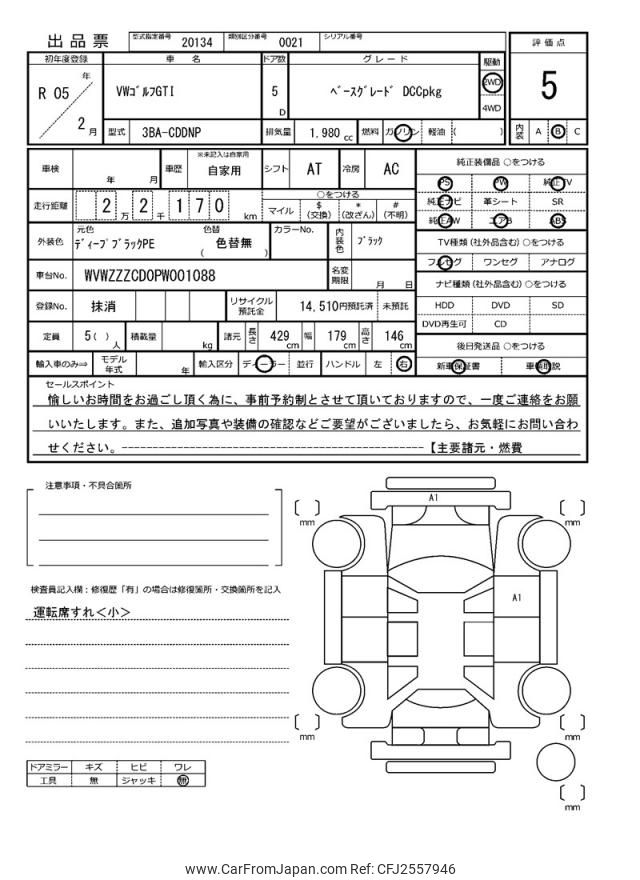 出品票 型式指定番号 20134 類別区分番号 0021 シリアル番号
評価点
5
初年度登録 車名 ドア数 グレード 駆動
R 05 年 2月
VWｺﾞﾙﾌGTI 5 D ﾍﾞｰｽｸﾞﾚｰﾄﾞ DCCpkg 2WD
4WD
型式 3BA-CDDNP 排気量 1.980 cc 燃料 ガソリン 軽油 ( )
内装 A B C
車検 年 月 車歴 ※未記入は自家用 自家用 シフト AT 冷房 AC
純正装備品 ○をつける
PS PW 純正TV
純正ナビ 革シート SR
純正AW エアB ABS
走行距離 2 万 2 千 1 7 0 km
○をつける
マイル $ (交換) * (改ざん) # (不明)
TV種類 (社外品含む) ○をつける
フルセグ ワンセグ アナログ
外装色 元色 ﾃﾞｨｰﾌﾟﾌﾞﾗｯｸPE 色替 色替無 ( )
カラーNo. 内装色 ﾌﾞﾗｯｸ
車台No. WVWZZZCD0PW001088 名変期限 月 日
ナビ種類 (社外品含む) ○をつける
HDD DVD SD
DVD再生可 CD
登録No. 抹消 リサイクル預託金 14,510円預託済 未預託
定員 5( ) 人 積載量 kg 諸元 長さ 429 cm 幅 179 cm 高さ 146 cm
後日発送品 ○をつける
新車保証書 車輌取説
輸入車のみ⇒ モデル年式 年 輸入区分 ディーラー 並行 ハンドル 左 右
セールスポイント
愉しいお時間をお過ごし頂く為に、事前予約制とさせて頂いておりますので、一度ご連絡をお願
いいたします。また、追加写真や装備の確認などご要望がございましたら、お気軽にお問い合わ
せください。----------------------------------------------【主要諸元・燃費
注意事項・不具合箇所
検査員記入欄：修復歴「有」の場合は修復箇所・交換箇所を記入
運転席すれ＜小＞
A1
A1
[ ] mm
[ ] mm
[ ] mm
[ ] mm
[ ] mm
ドアミラー キズ ヒビ ワレ
工具 無 ジャッキ 無
www.CarFromJapan.com Ref: CFJ2557946